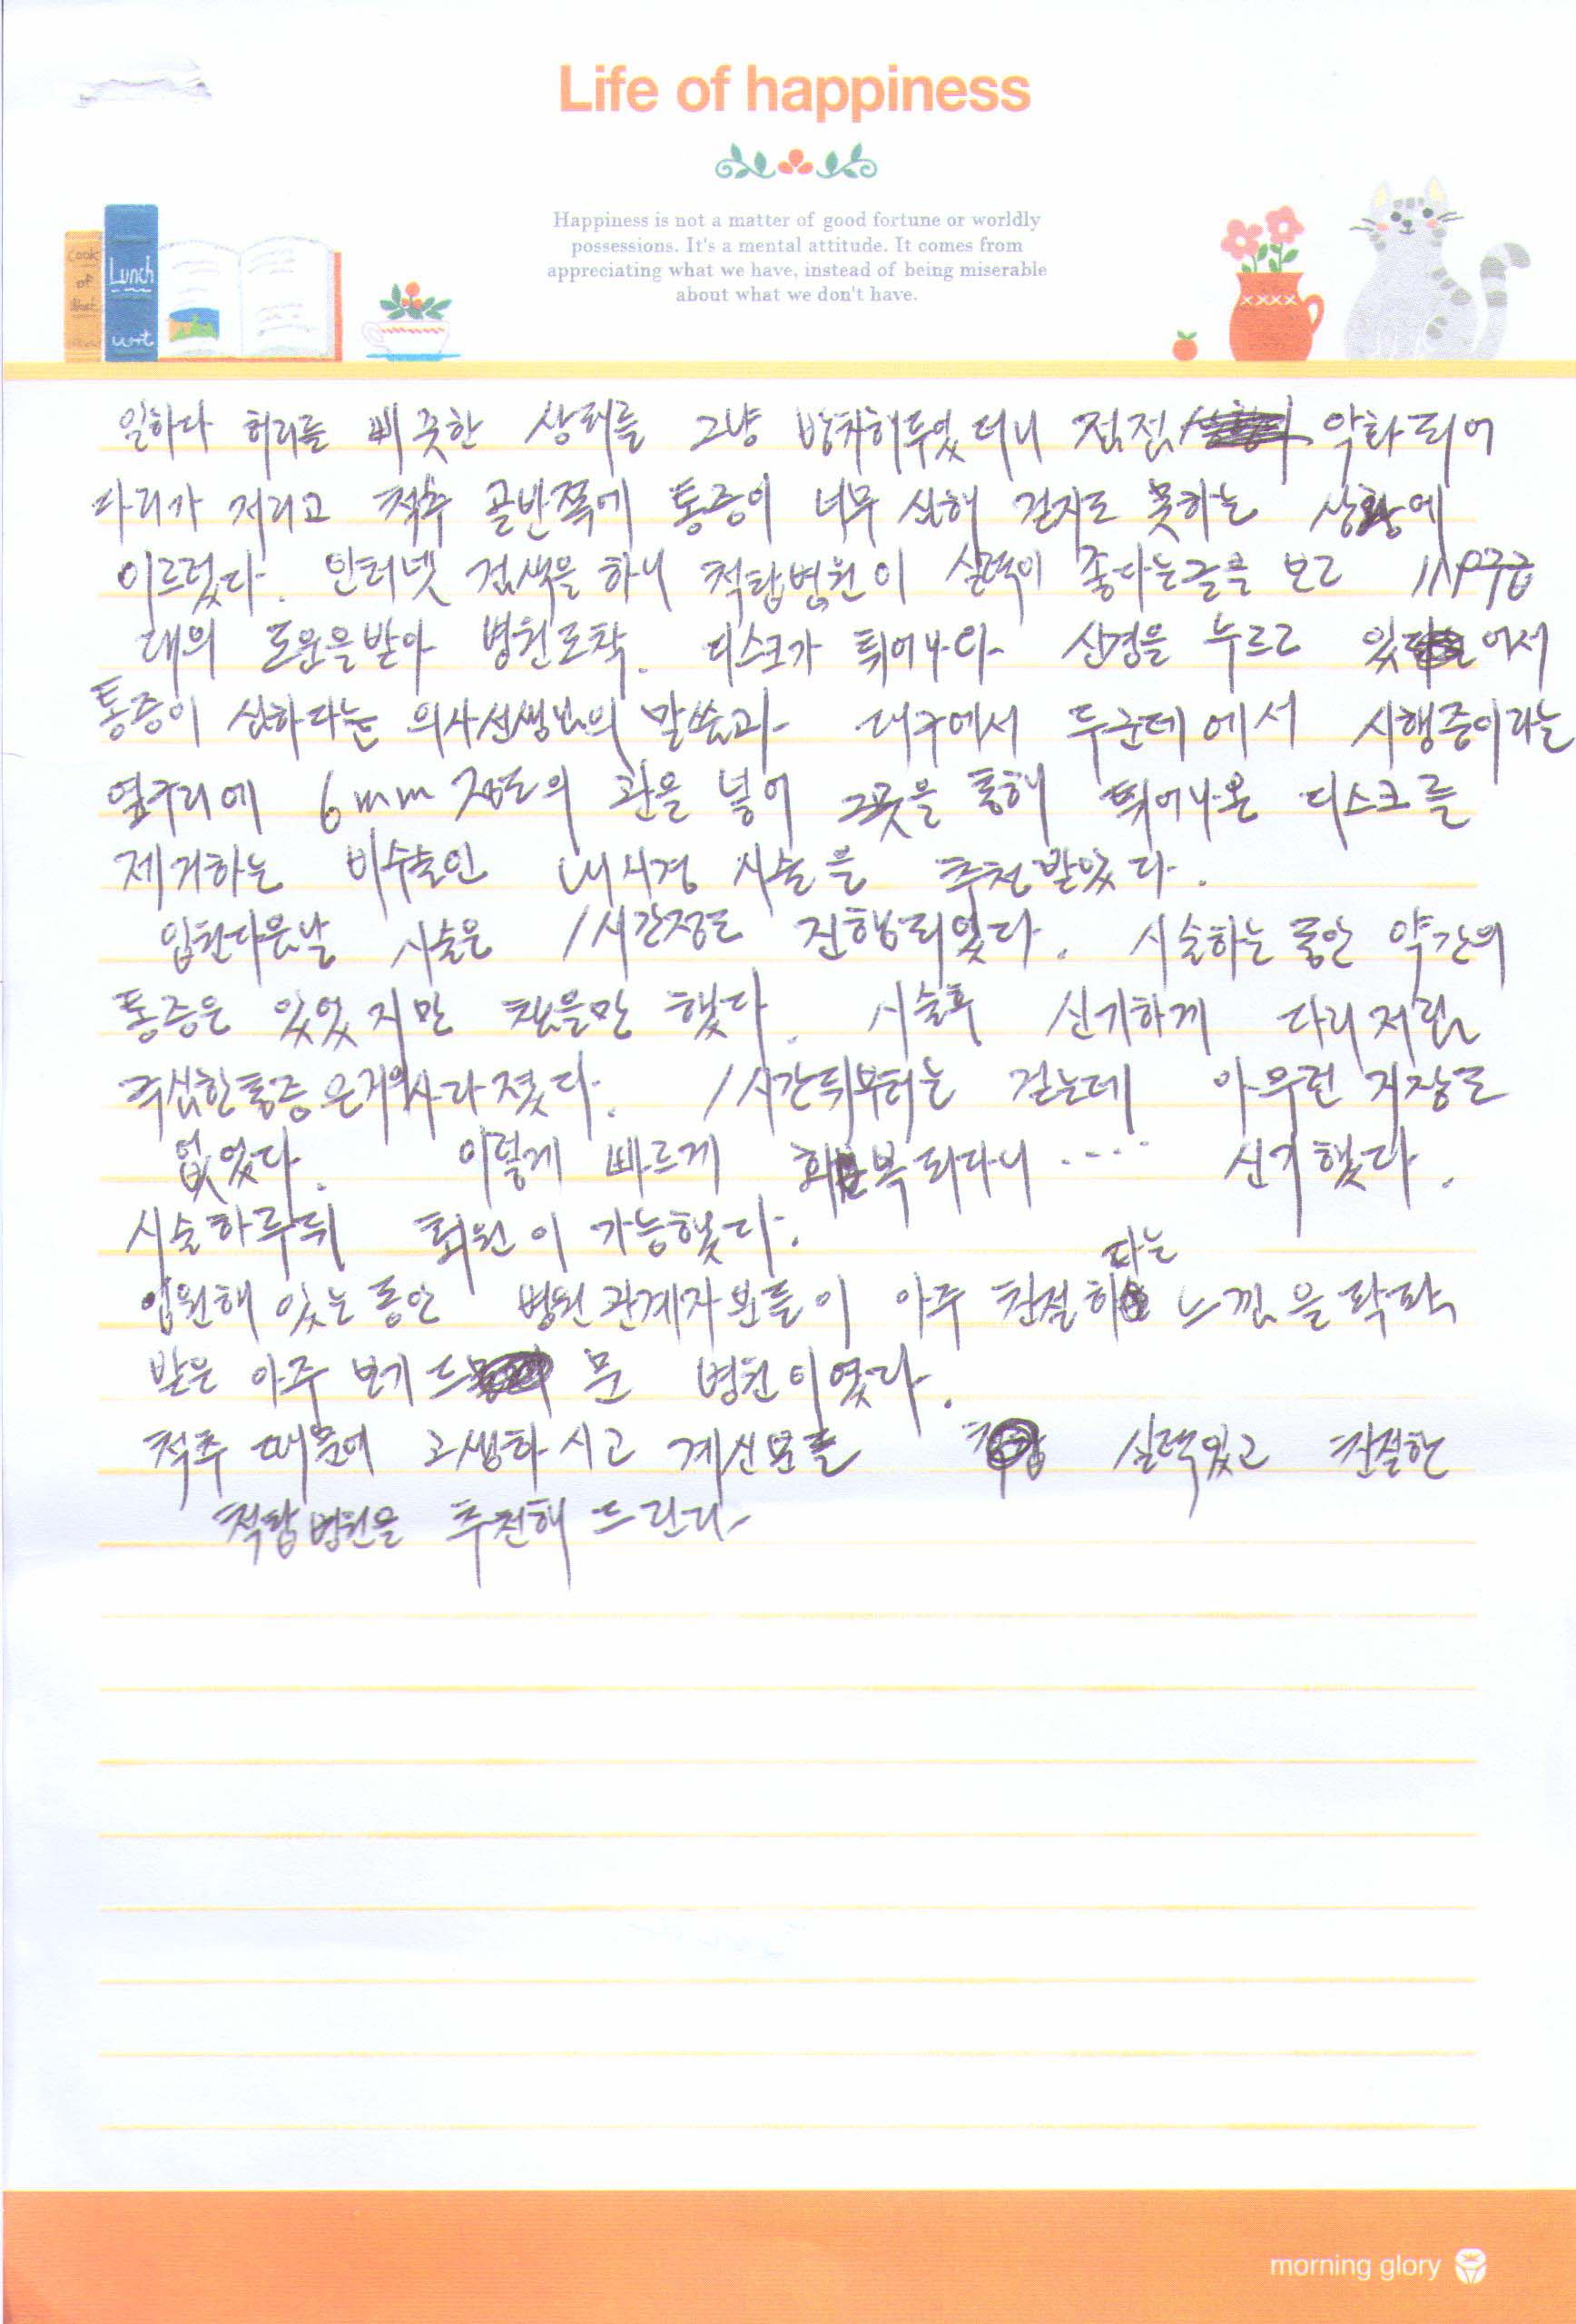 Life of happiness
Happiness is not a matter of good fortune or worldly
possessions. It's a mental attitude. It comes from
appreciating what we have, instead of being miserable
about what we don't have.
Cook
of
Lunch
일하다 허리를 삐끗한 상처를 그냥 방치해두었더니 점점 악화되어
다리가 저리고 척추 골반쪽에 통증이 너무 심해 걷지도 못하는 상황에
이르렀다. 인터넷 검색을 하니 척탑병원이 실력이 좋다는글을 보고 119구급
대의 도움을받아 병원도착. 디스크가 튀어나와 신경을 누르고 있어서
통증이 심하다는 의사선생님의 말씀과 대구에서 두군데에서 시행중이라는
옆구리에 6mm 정도의 관을 넣어 그곳을 통해 튀어나온 디스크를
제거하는 비수술인 내시경 시술을 추천받았다.
입원다음날 시술은 1시간정도 진행되었다. 시술하는 동안 약간의
통증은 있었지만 참을만 했다. 시술후 신기하게 다리저림
극심한통증은거의사라졌다. 1시간뒤부터는 걷는데 아무런 지장도
없었다. 이렇게 빠르게 회복되다니 .... 신기했다.
시술하루뒤 퇴원이 가능했다.
입원해 있는동안 병원관계자분들이 아주 친절하다는 느낌을 팍팍
받은 아주 보기드문 병원이였다.
척추 때문에 고생하시고 계신분들 실력있고 친절한
척탑병원을 추천해 드린다
morning glory